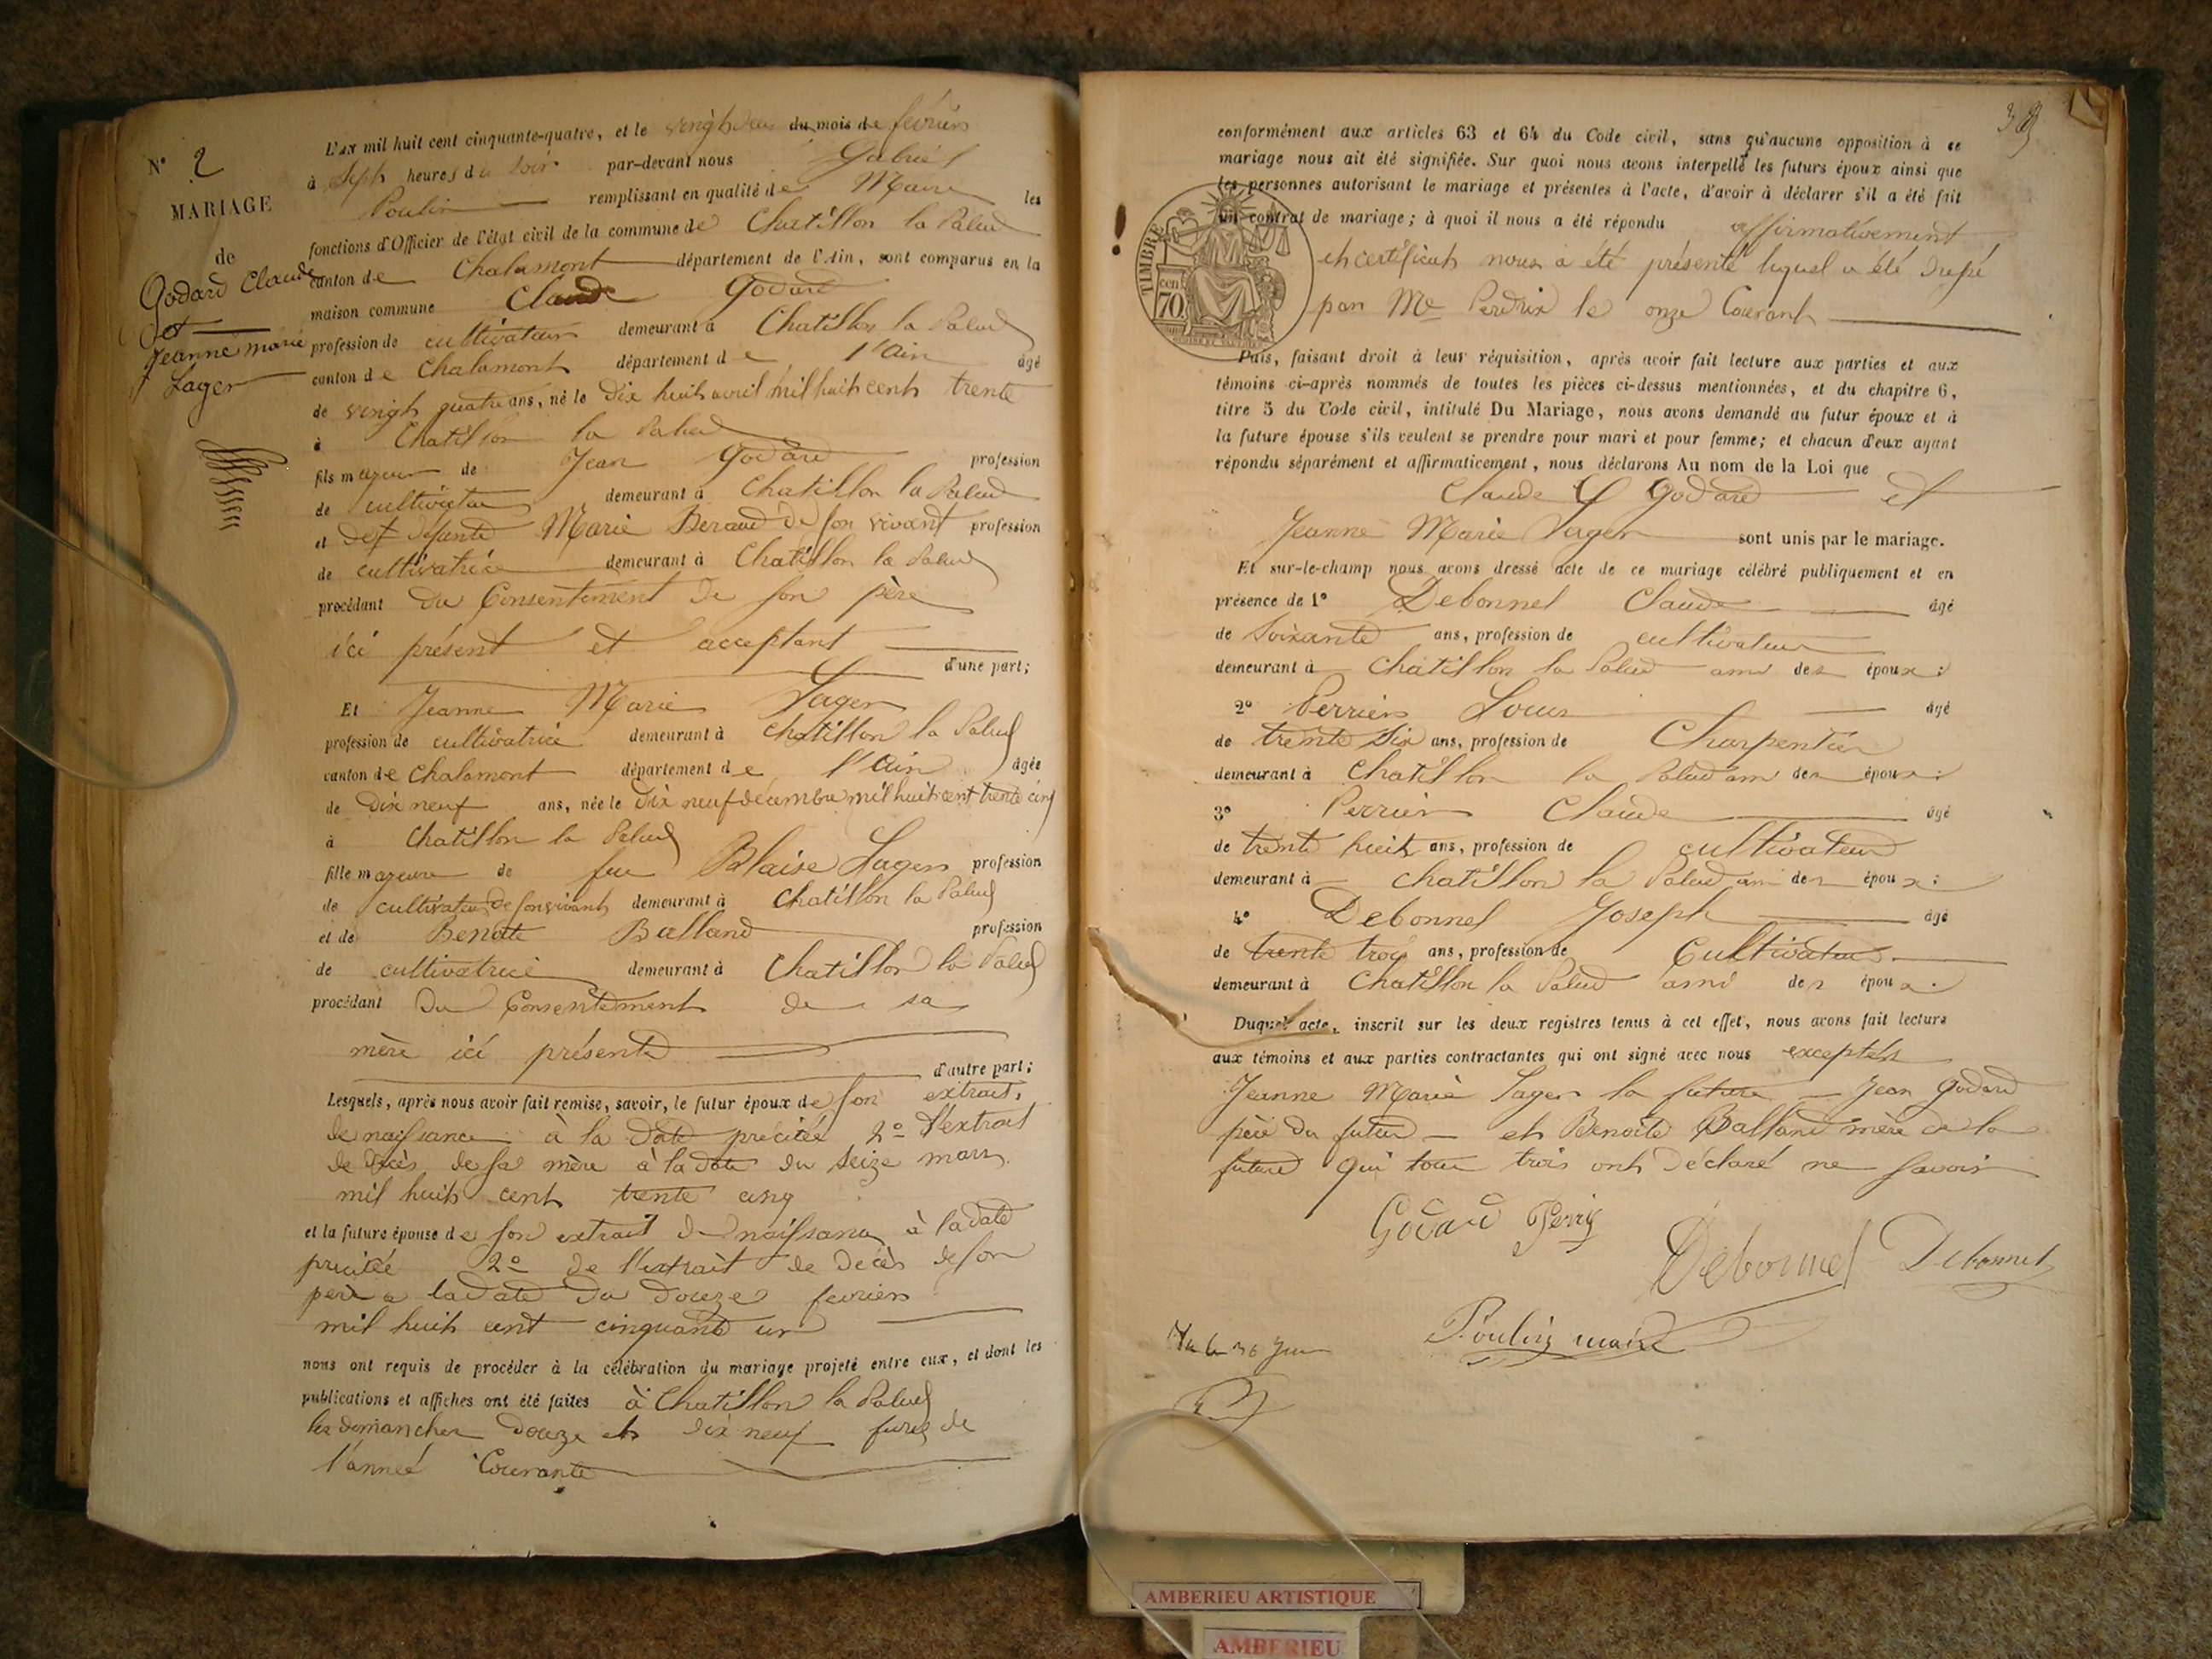 N° 2
MARIAGE
de
Godard Claude
et
Jeanne marie
Lager
L'AN mil huit cent cinquante-quatre, et le vingt deux du mois de février
à Sept heures du soir par-devant nous Gabriel
Poulin remplissant en qualité de Maire les
fonctions d'Officier de l'état civil de la commune de Chatillon la Palud
canton de Chalamont département de l'Ain, sont comparus en la
maison commune Claude Godard
profession de cultivateur demeurant à Chatillon la Palud
canton de Chalamont département de l'Ain âgé
de vingt quatre ans, né le Dix huit avril mil huit cent trente
à Chatillon la Palud
fils majeur de Jean Godard profession
de cultivateur demeurant à Chatillon la Palud
et de défunte Marie Beraud de son vivant profession
de cultivatrice demeurant à Chatillon la Palud
procédant du Consentement de son père
ici présent et acceptant
d'une part;
Et Jeanne Marie Lager
profession de cultivatrice demeurant à Chatillon la Palud
canton de Chalamont département de l'Ain âgée
de Dix neuf ans, née le Dix neuf décembre mil huit cent trente cinq
à Chatillon la Palud
fille majeure de feu Blaise Lager profession
de cultivateur de son vivant demeurant à Chatillon la Palud
et de Benoite Balland profession
de cultivatrice demeurant à Chatillon la Palud
procédant du Consentement de sa
mère ici présente
d'autre part;
Lesquels, après nous avoir fait remise, savoir, le futur époux de son extrait
de naissance à la date précitée 2° l'extrait
de décès de sa mère à la date du seize mars
mil huit cent trente cinq
et la future épouse de son extrait de naissance à la date
précitée 2° de l'extrait de décès de son
père à la date du douze fevrier
mil huit cent cinquante un
nous ont requis de procéder à la célébration du mariage projeté entre eux, et dont les
publications et affiches ont été faites à Chatillon la Palud
les dimanches douze et dix neuf de
l'année Courante
conformément aux articles 63 et 64 du Code civil, sans qu'aucune opposition à ce
mariage nous ait été signifiée. Sur quoi nous avons interpellé les futurs époux ainsi que
les personnes autorisant le mariage et présentes à l'acte, d'avoir à déclarer s'il a été fait
un contrat de mariage; à quoi il nous a été répondu affirmativement
et certificat nous a été présenté lequel a été
par Me Perdrix le onze Courant
TIMBRE
70 cen
Puis, faisant droit à leur réquisition, après avoir fait lecture aux parties et aux
témoins ci-après nommés de toutes les pièces ci-dessus mentionnées, et du chapitre 6,
titre 5 du Code civil, intitulé Du Mariage, nous avons demandé au futur époux et à
la future épouse s'ils veulent se prendre pour mari et pour femme; et chacun d'eux ayant
répondu séparément et affirmativement, nous déclarons Au nom de la Loi que
Claude Godard et
Jeanne Marie Lager sont unis par le mariage.
Et sur-le-champ nous avons dressé acte de ce mariage célébré publiquement et en
présence de 1° Debonnel Claude âgé
de Soixante ans, profession de cultivateur
demeurant à Chatillon la Palud ami des époux;
2° Perrier Louis âgé
de trente six ans, profession de Charpentier
demeurant à Chatillon la Palud ami des époux;
3° Perrier Claude âgé
de trente huit ans, profession de cultivateur
demeurant à Chatillon la Palud ami des époux;
4° Debonnel Joseph âgé
de trente trois ans, profession de Cultivateur
demeurant à Chatillon la Palud ami des époux.
Duquel acte, inscrit sur les deux registres tenus à cet effet, nous avons fait lecture
aux témoins et aux parties contractantes qui ont signé avec nous exceptés
Jeanne Marie Lager la future — Jean Godard
père du futur — et Benoite Balland mère de la
future qui tous trois ont déclaré ne savoir
Godard
Debonnel Debonnel
Poulin maire
AMBERIEU ARTISTIQUE
AMBERIEU